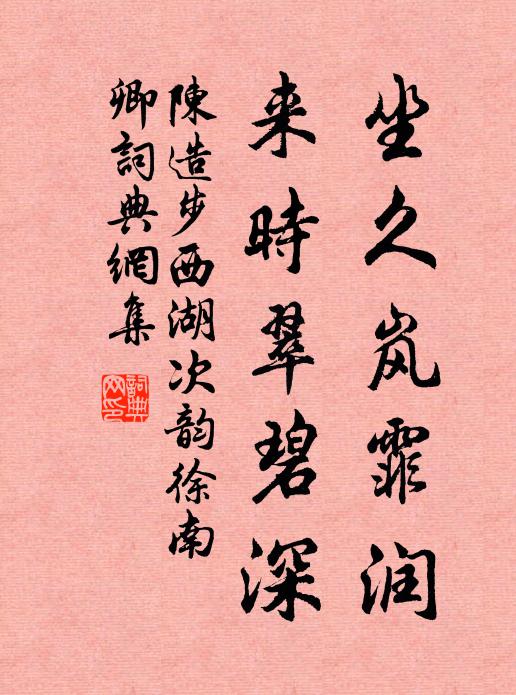 坐久岚霏润
来時翠碧深
陳造步西湖次韵徐南
卿詞典網集
詞典网印